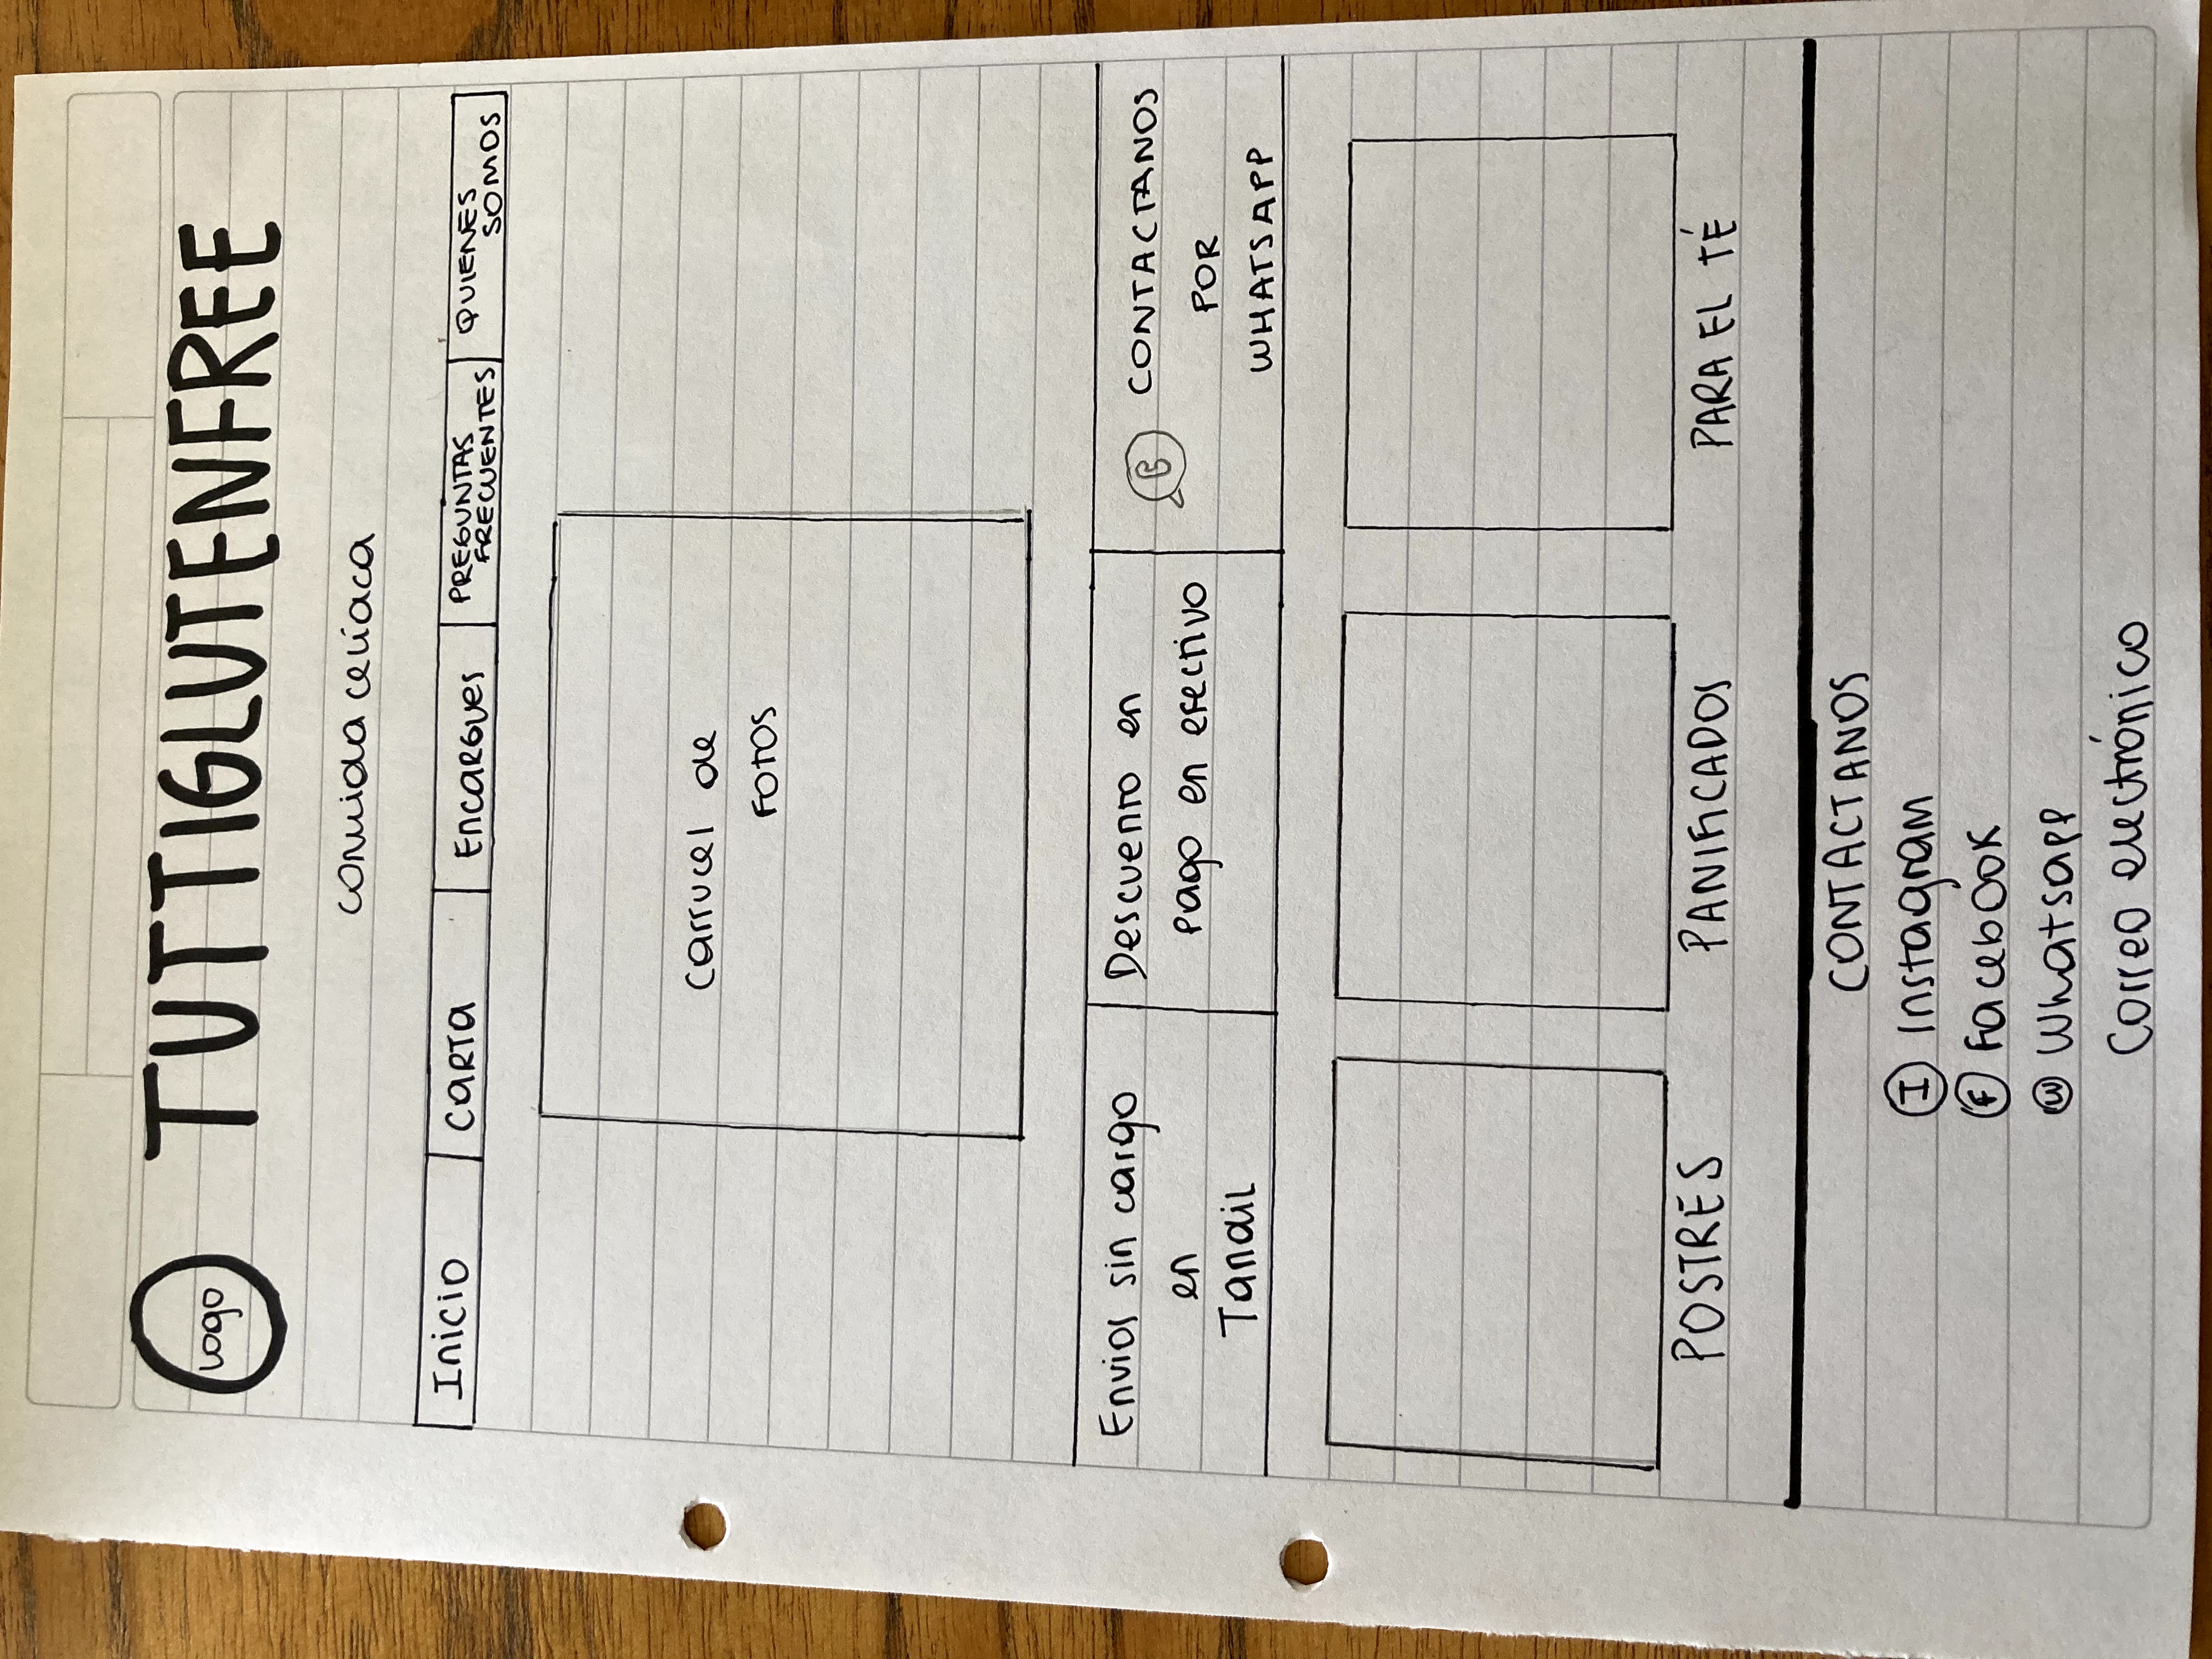 Logo
TUTTIGLUTENFREE
comida celíaca
Inicio
CARTA
Encargues
PREGUNTAS
FRECUENTES
QUIENES
SOMOS
Carrucel de
FOTOS
Envios sin cargo
en
Tandil
Descuento en
pago en efectivo
CONTACTANOS
POR
WHATSAPP
POSTRES
PANIFICADOS
PARA EL TÉ
CONTACTANOS
I Instagram
F Facebook
W Whatsapp
Correo electrónico